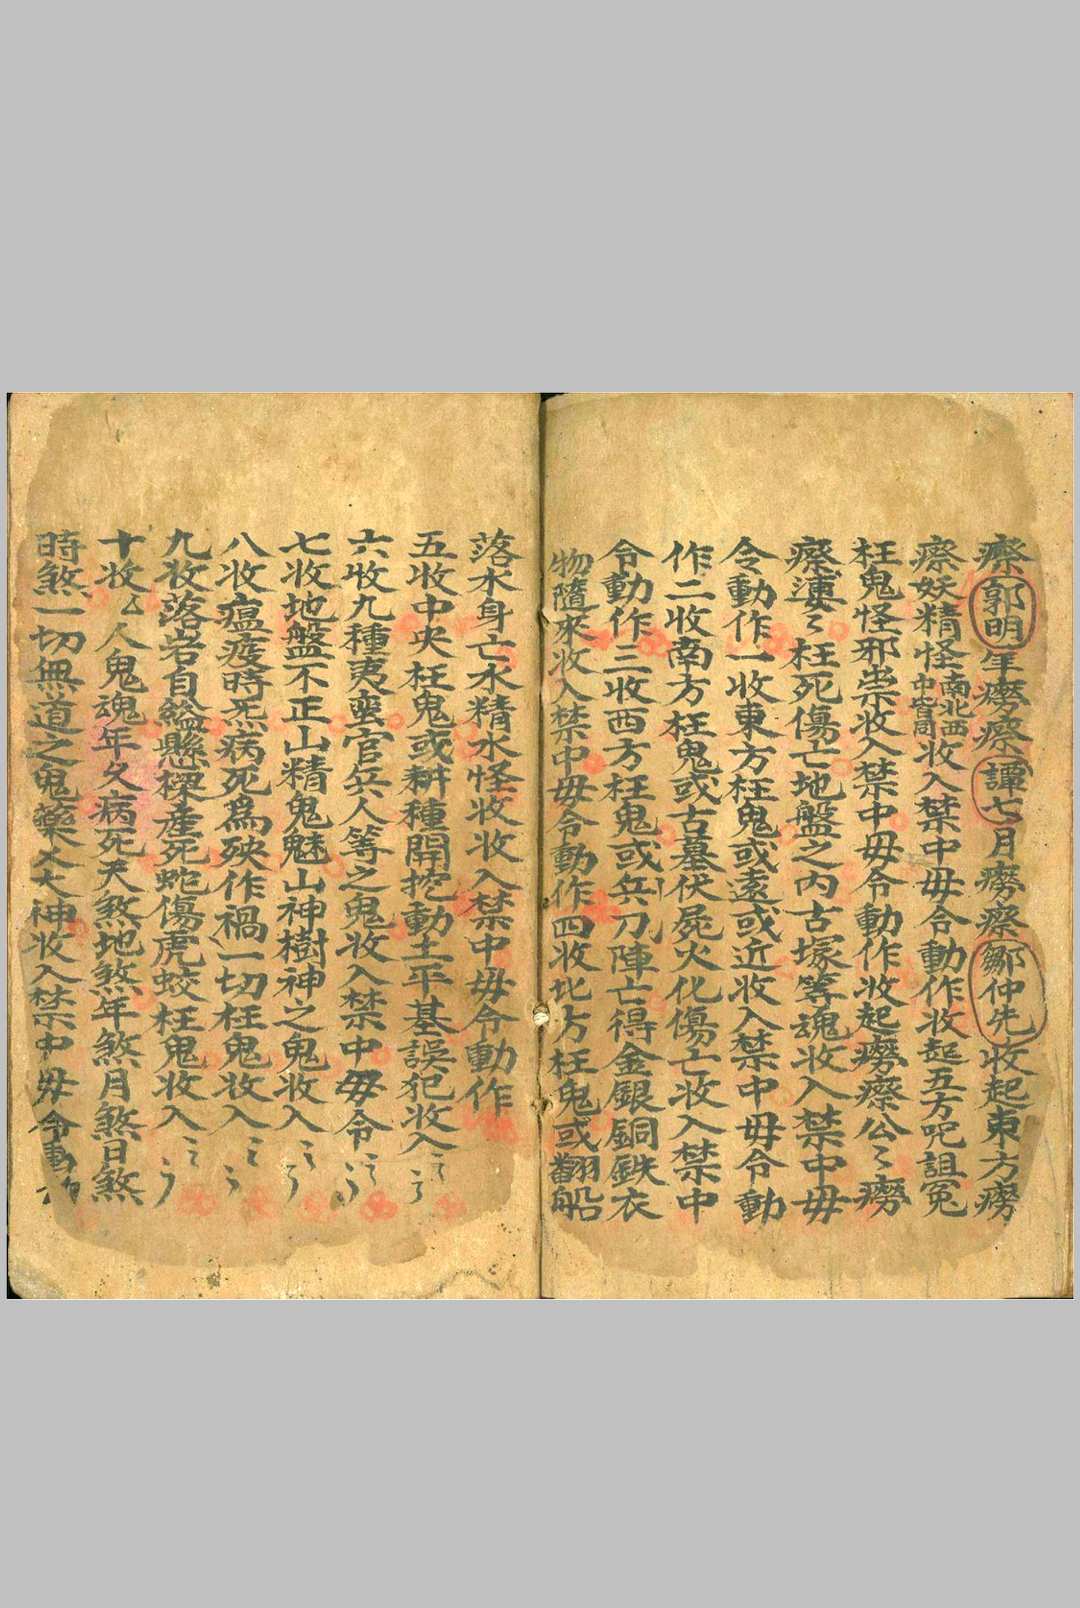 瘵郭明年癆瘵譚七月癆瘵鄒仲先收起東方癆
瘵妖精怪南北西中皆同收入禁中毋令動作收起五方咒詛冤
枉鬼怪邪祟收入禁中毋令動作收起癆瘵公〻癆
瘵婆〻枉死傷亡地盤之内古塚等魂收入禁中毋
令動作一收東方枉鬼或遠或近收入禁中毋令動
作二收南方枉鬼或古墓伏屍火化傷亡收入禁中
令動作三收西方枉鬼或兵刀陣亡得金銀銅鉄衣
物隨來收入禁中毋令動作四收北方枉鬼或翻船
落水身亡水精水怪收收入禁中毋令動作
五收中央枉鬼或耕種開挖動土平基誤犯收入〻〻
六收九種夷蛮官兵人等之鬼收入禁中毋令〻〻
七收地盤不正山精鬼魅山神樹神之鬼收入〻〻
八收瘟疫時炁病死爲殃作禍一切枉鬼收入〻〻
九收落岩自縊懸樑產死蛇傷虎蛟枉鬼收入〻〻
十收人鬼魂年久病死天煞地煞年煞月煞日煞
時煞一切無道之鬼藥大神收入禁中毋令動